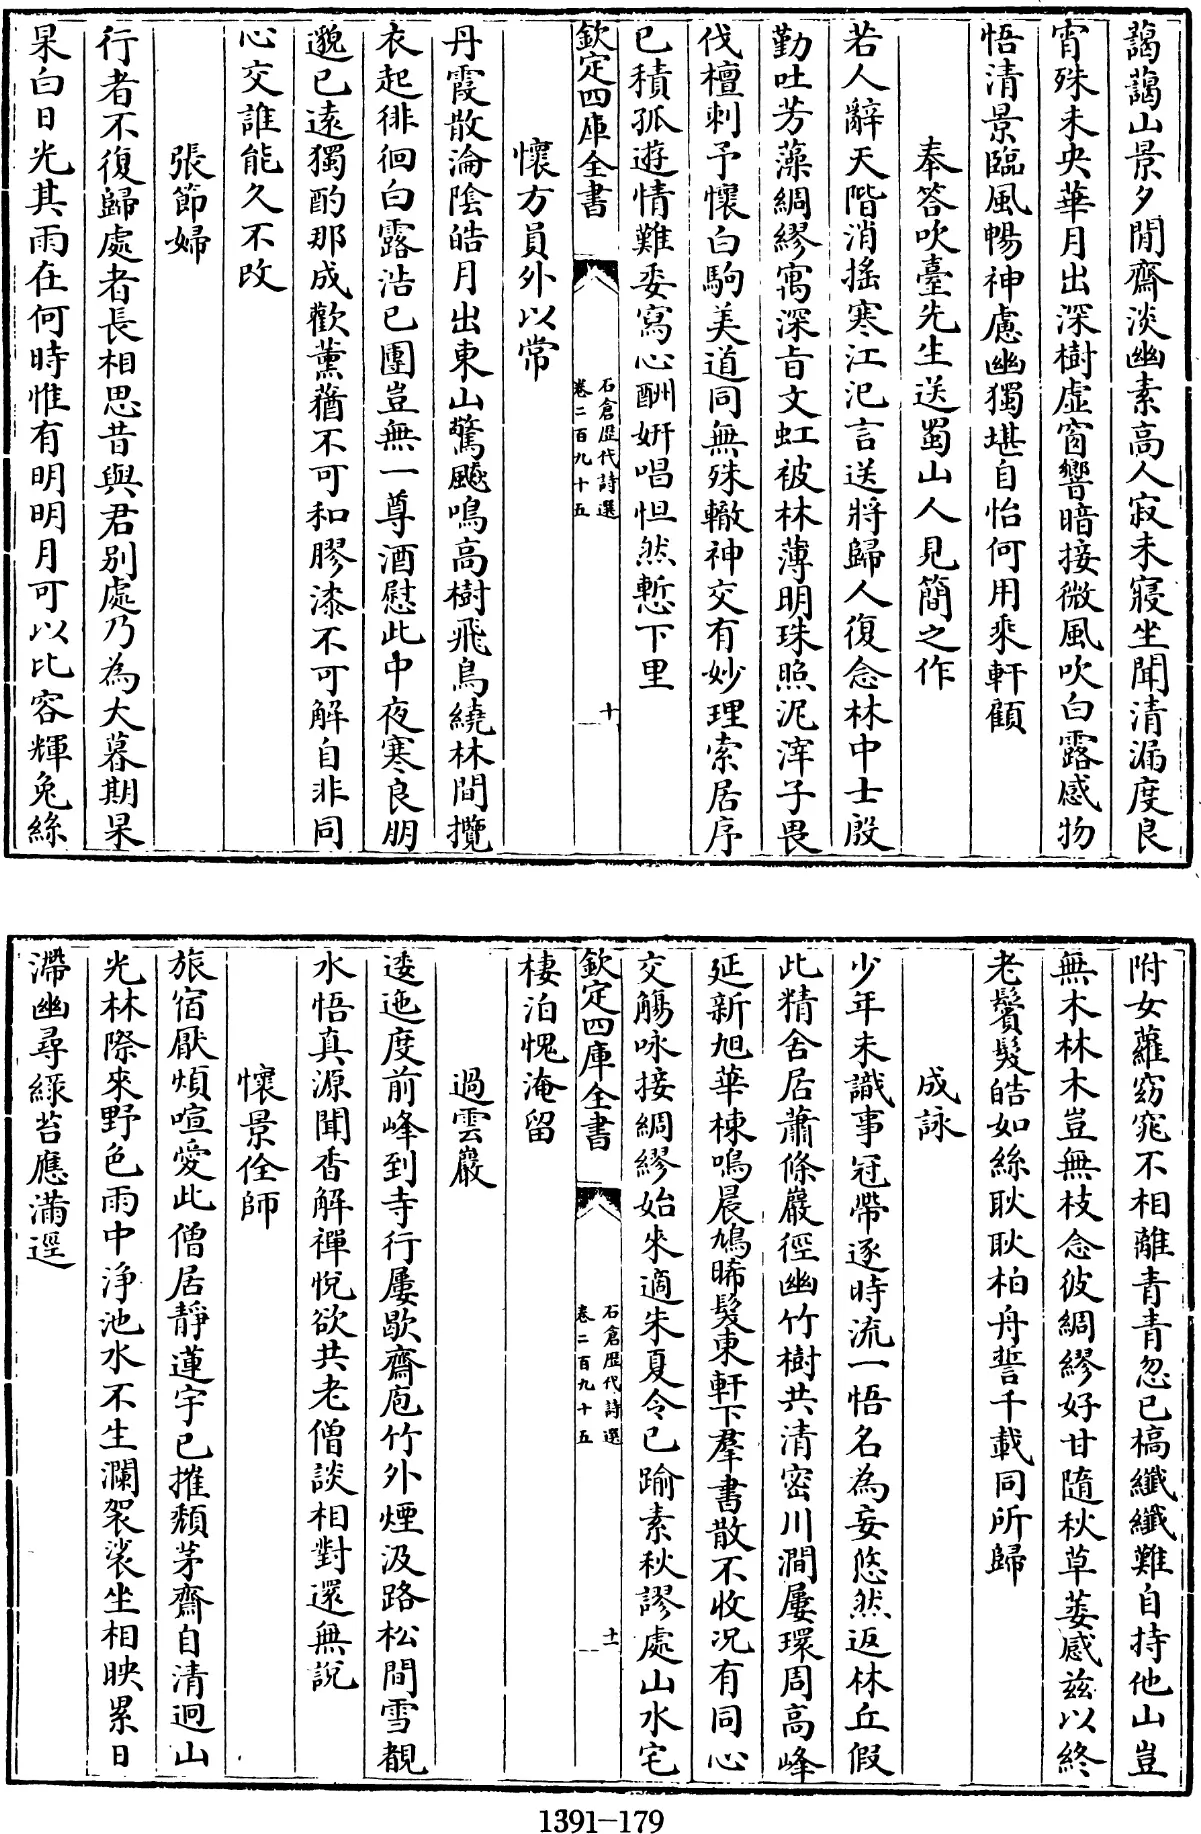 藹藹山景夕閒齋淡幽素高人寂未寢坐聞清漏度良
宵殊未央華月出深樹虛窗響暗接微風吹白露感物
悟清景臨風暢神慮幽獨堪自怡何用乘軒顧
奉答吹臺先生送蜀山人見簡之作
若人辭天階消搖寒江汜言送將歸人復念林中士殷
勤吐芳藻綢繆寓深旨文虹被林薄明珠照泥滓子畏
伐檀刺予懷白駒美道同無殊轍神交有妙理索居序
已積孤遊情難委寫心酬妍唱怛然慙下里
欽定四庫全書
石倉歷代詩選
卷二百九十五
十
懷方員外以常
丹霞散淪陰皓月出東山驚飈鳴高樹飛鳥繞林間攬
衣起徘徊白露浩已團豈無一尊酒慰此中夜寒良朋
邈已遠獨酌那成歡薰蕕不可和膠漆不可解自非同
心交誰能久不改
張節婦
行者不復歸處者長相思昔與君别處乃為大暮期杲
杲白日光其雨在何時惟有明明月可以比容輝兔絲
附女蘿窈窕不相離青青忽已槁纖纖難自持他山豈
無木林木豈無枝念彼綢繆好甘隨秋草萎感兹以終
老鬢髮皓如絲耿耿柏舟誓千載同所歸
成詠
少年未識事冠帶逐時流一悟名為妄悠然返林丘假
此精舍居蕭條巖徑幽竹樹共清密川澗屢環周高峰
延新旭華棟鳴晨鳩晞髮東軒下羣書散不收况有同心
交觴咏接綢繆始來適朱夏令已踰素秋謬處山水宅
欽定四庫全書
石倉歷代詩選
卷二百九十五
十一
棲泊愧淹留
過雲巖
逶迤度前峰到寺行屢歇齋庖竹外煙汲路松間雪覩
水悟真源聞香解禪悅欲共老僧談相對還無説
懷景佺師
旅宿厭煩喧愛此僧居靜蓮宇已摧頽茅齋自清迥山
光林際來野色雨中净池水不生瀾袈裟坐相映累日
滯幽尋綠苔應滿逕
1391-179